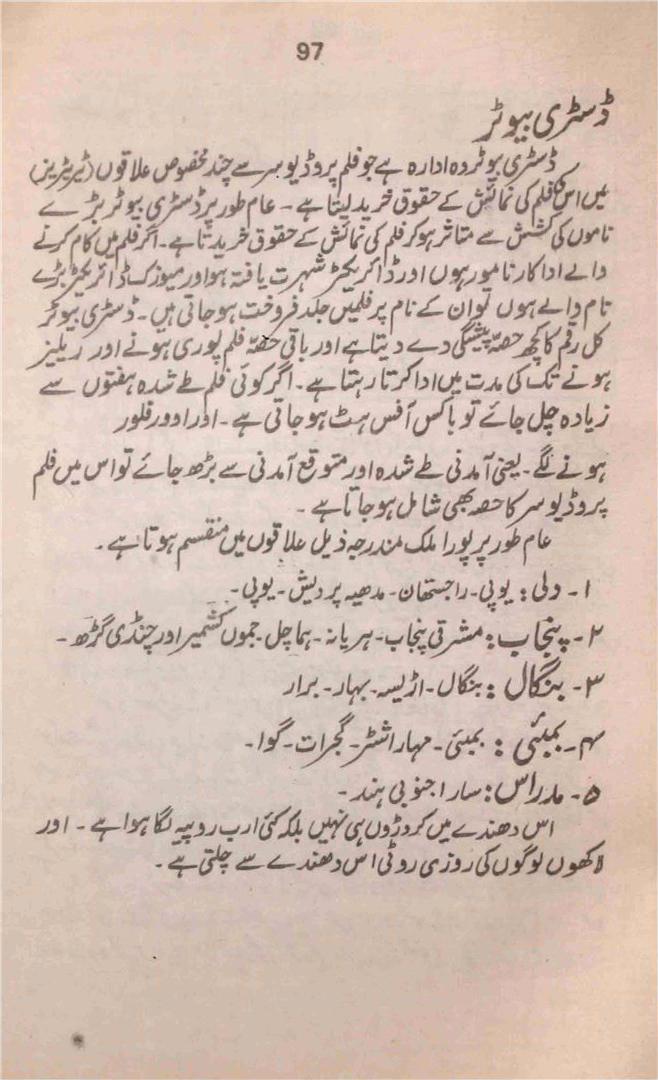 97
ڈسٹری بیوٹر
ڈسٹری بیوٹر وہ ادارہ ہے جو فلم پروڈیوسر سے چند مخصوص علاقوں (ٹیریٹریز)
میں اس فلم کی نمائش کے حقوق خرید لیتا ہے ۔ عام طور پر ڈسٹری بیوٹر بڑے
ناموں کی کشش سے متاثر ہو کر فلم کی نمائش کے حقوق خریدتا ہے۔ اگر فلم میں کام کرنے
والے اداکار نامور ہوں اور ڈائریکٹر شہرت یافتہ ہو اور میوزک ڈائریکٹر بڑے
نام والے ہوں تو ان کے نام پر فلمیں جلد فروخت ہو جاتی ہیں۔ ڈسٹری بیوٹر
کل رقم کا کچھ حصہ پیشگی دے دیتا ہے اور باقی حصہ فلم پوری ہونے اور ریلیز
ہونے تک کی مدت میں ادا کرتا رہتا ہے۔ اگر کوئی فلم طے شدہ ہفتوں سے
زیادہ چل جائے تو باکس آفس ہٹ ہو جاتی ہے۔ اور اوور فلور
ہونے لگے۔ یعنی آمدنی طے شدہ اور متوقع آمدنی سے بڑھ جائے تو اس میں فلم
پروڈیوسر کا حصہ بھی شامل ہو جاتا ہے ۔
عام طور پر پورا ملک مندرجہ ذیل علاقوں میں منقسم ہوتا ہے ۔
۱۔ دلی: یوپی۔ راجستھان۔ مدھیہ پردیش۔ یوپی۔
۲۔ پنجاب: مشرقی پنجاب۔ ہریانہ۔ ہماچل۔ جموں کشمیر اور چنڈی گڑھ۔
۳۔ بنگال: بنگال۔ اڑیسہ۔ بہار۔ برار
۴۔ بمبئی: بمبئی۔ مہاراشٹر۔ گجرات۔ گوا۔
۵۔ مدراس: سارا جنوبی ہند۔
اس دھندے میں کروڑوں ہی نہیں بلکہ کئی ارب روپیہ لگا ہوا ہے ۔ اور
لاکھوں لوگوں کی روزی روٹی اس دھندے سے چلتی ہے ۔